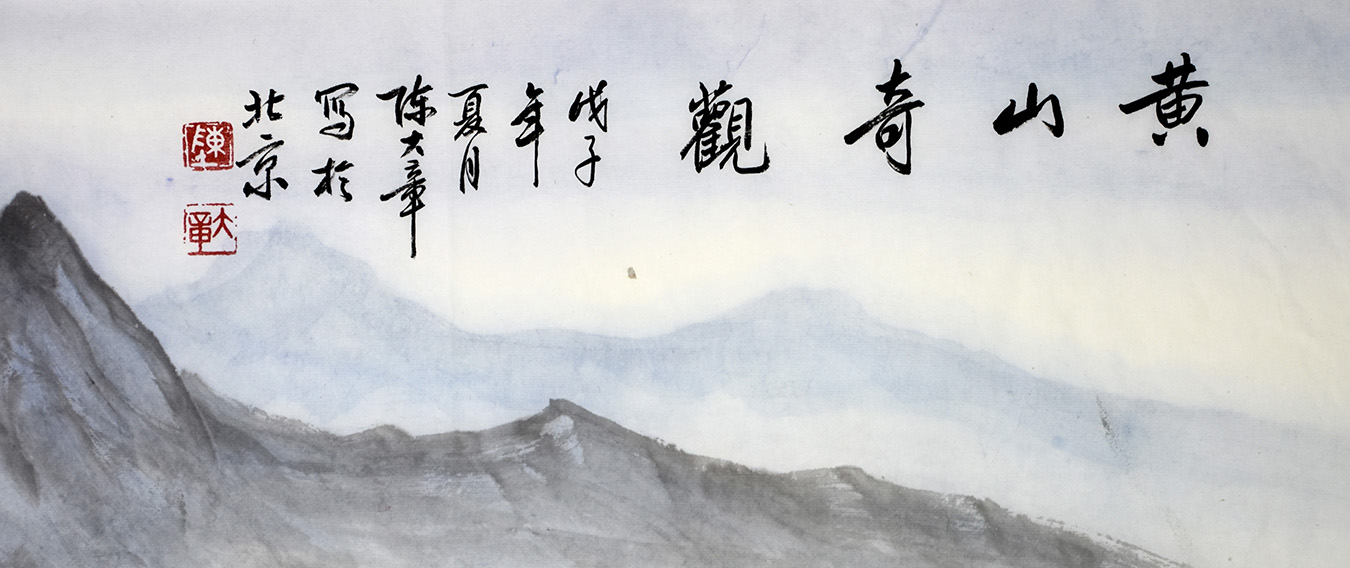 黄山奇觀
戊子
年
夏月
陈大章
写於
北京
陳
大章